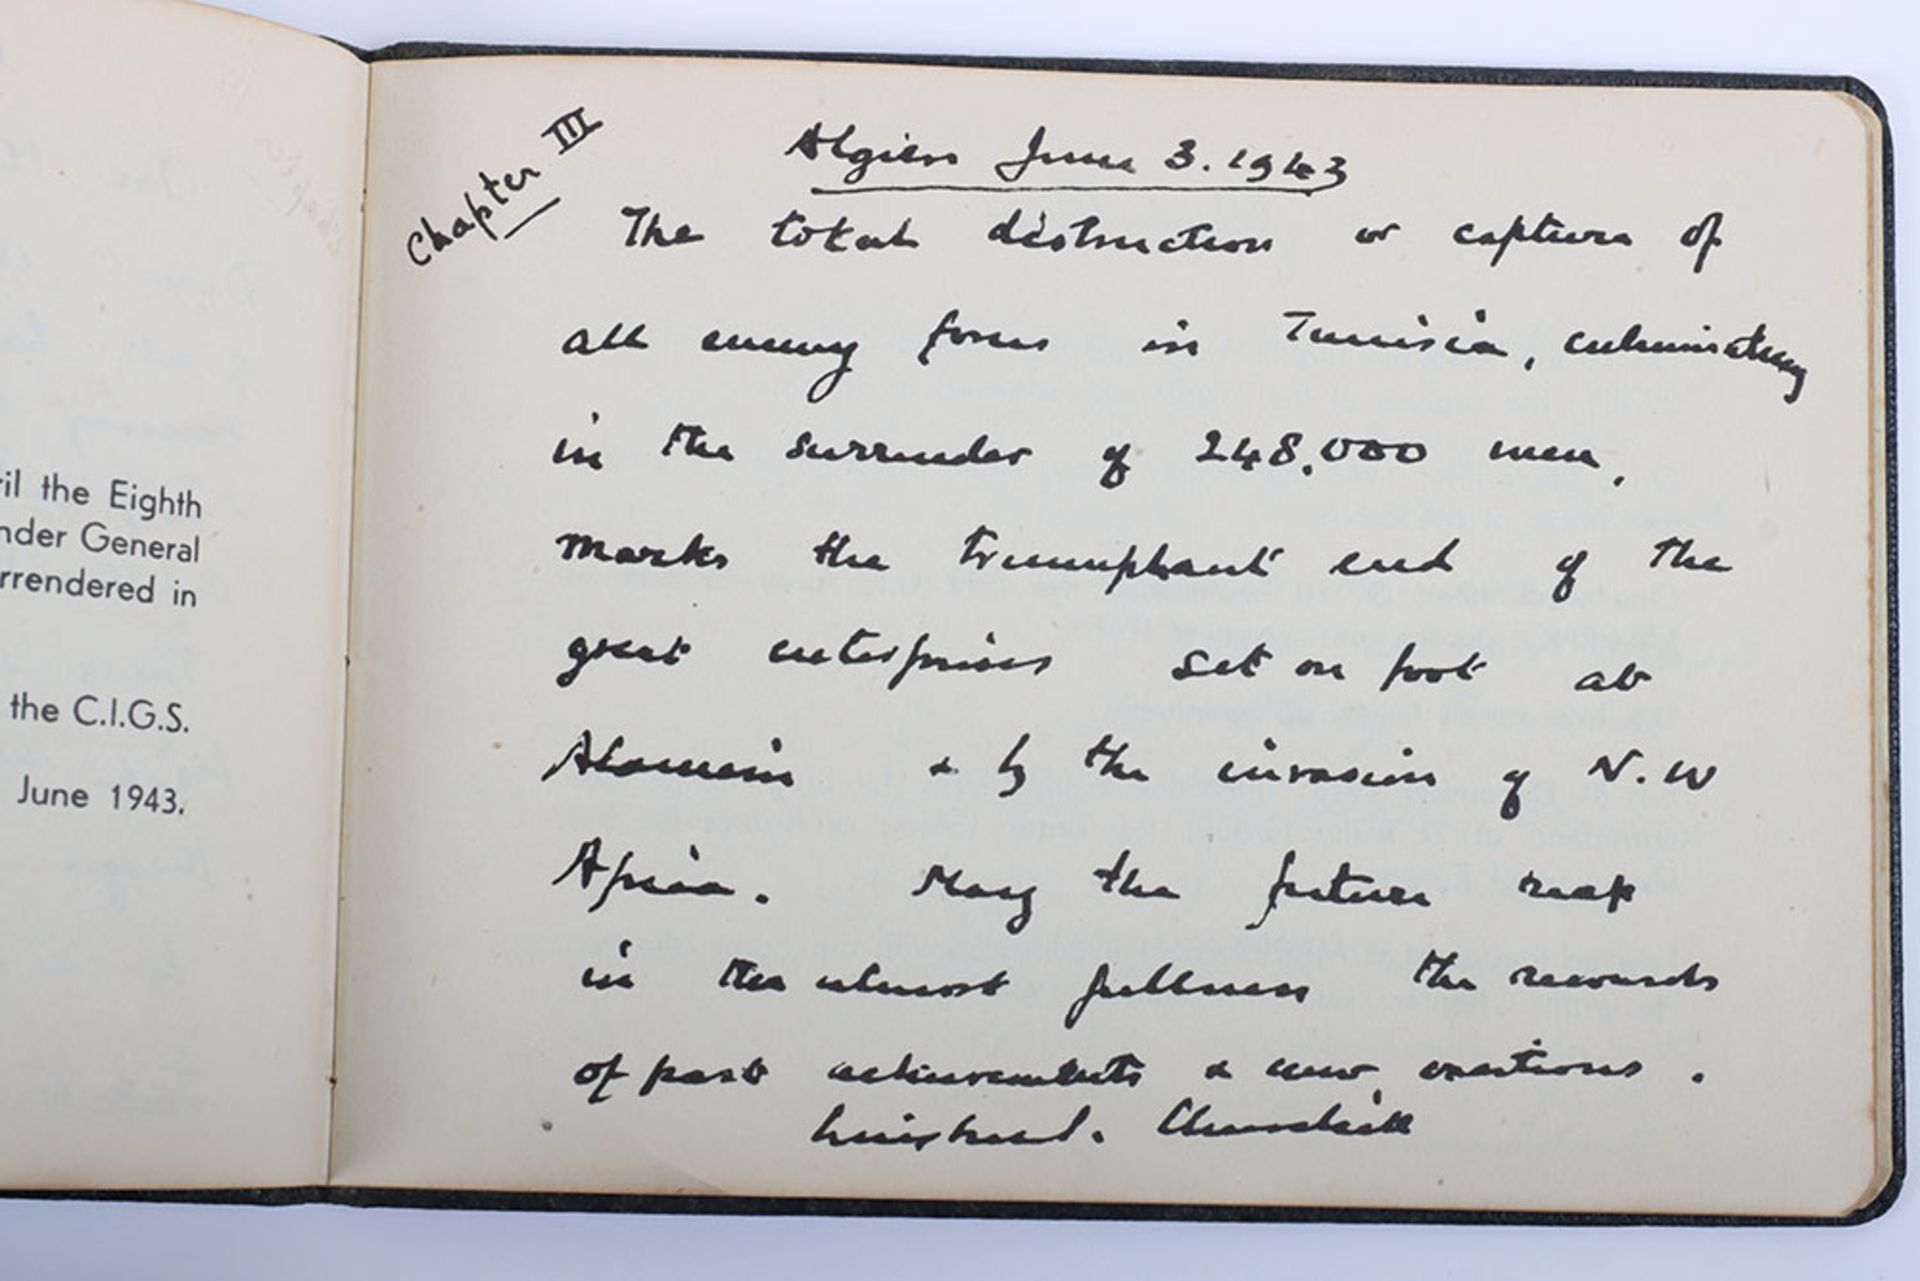 ril the Eighth
nder General
rrendered in
the C.I.G.S.
June 1943.
Chapter III
Algiers June 3. 1943
The total destruction or capture of
all enemy forces in Tunisia, culminating
in the surrender of 248,000 men,
marks the triumphant end of the
great enterprises set on foot at
Alamein & by the invasion of N.W
Africa. May the future reap
in the utmost fullness the rewards
of past achievements & new exertions.
Winston S. Churchill